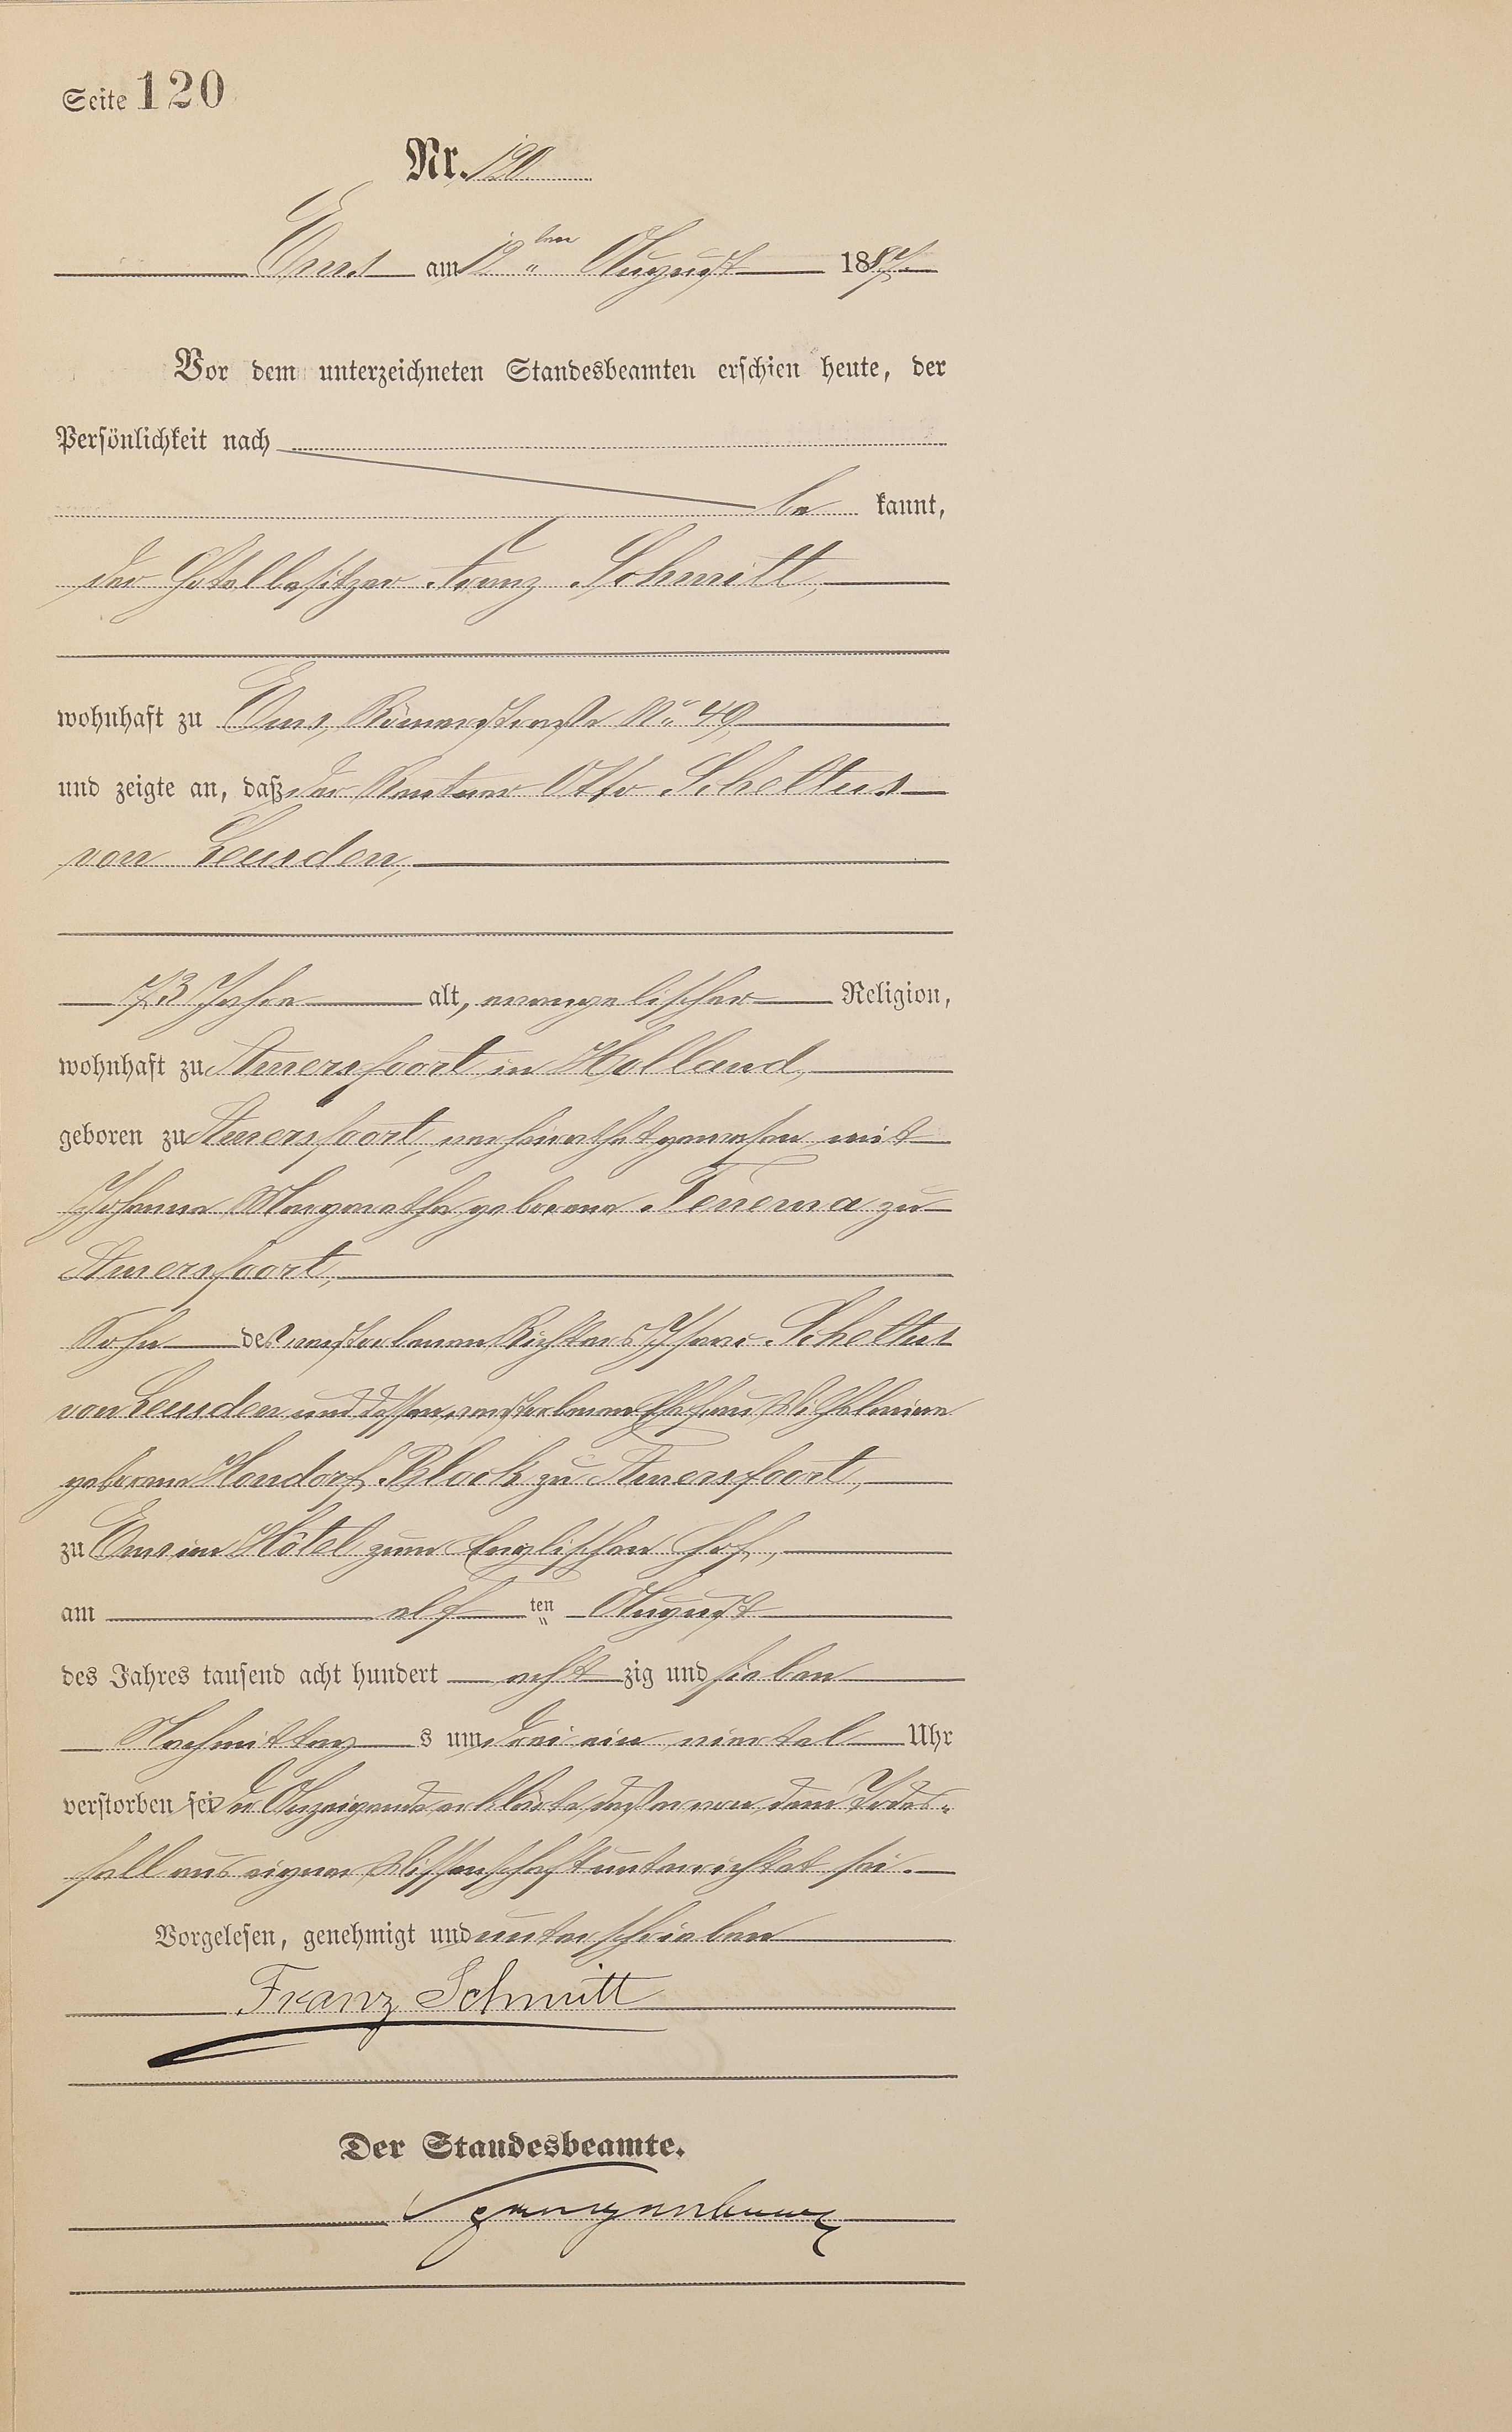 Seite 120
Nr. 120
Ems am 12ten August 1887.
Vor dem unterzeichneten Standesbeamten erschien heute, der
Persönlichkeit nach
be kannt,
der Hotelbesitzer Franz Schmitt,
wohnhaft zu Ems, Römerstraße No 49,
und zeigte an, daß der Rentner Otto Scheltus
von Leusden,
73 Jahre alt, evangelischer Religion,
wohnhaft zu Amersfoort in Holland,
geboren zu Amersfoort, verheirathet gewesen mit
Johanna Margaretha geborene Tenema zu
Amersfoort,
Sohn des verstorbenen Richters Isaac Scheltus
von Leusden und dessen verstorbenen Ehefrau Wilhelmine
geborene Hondorf Block zu Amersfoort,
zu Ems im Hôtel zum Englischen Hof,
am elf ten August
des Jahres tausend acht hundert acht zig und sieben
Nachmittag s um drei ein viertel Uhr
verstorben sei. Der Anzeigende erklärte, daß er von dem Todes-
fall aus eigener Wissenschaft unterrichtet sei.
Vorgelesen, genehmigt und unterschrieben
Franz Schmitt
Der Standesbeamte.